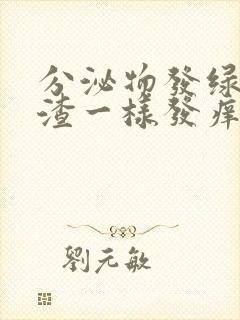 分泌物發绿
渣一樣發痒
劉元敏